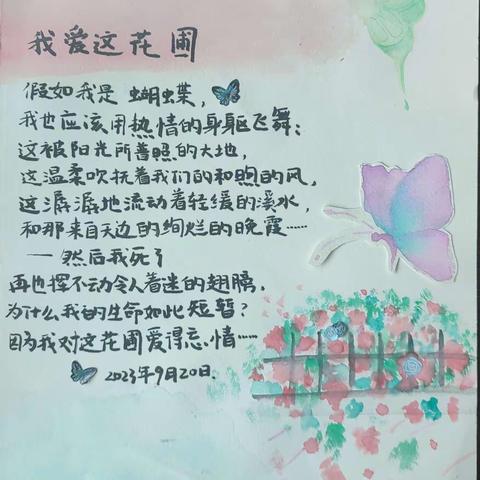 我爱这花圃
假如我是蝴蝶，
我也应该用热情的身躯飞舞：
这被阳光所普照的大地，
这温柔吹抚着我们的和煦的风，
这潺潺地流动着轻缓的溪水，
和那来自天边的绚烂的晚霞……
——然后我死了
再也挥不动令人着迷的翅膀，
为什么我的生命如此短暂？
因为我对这花圃爱得忘情……
2023年9月20日.